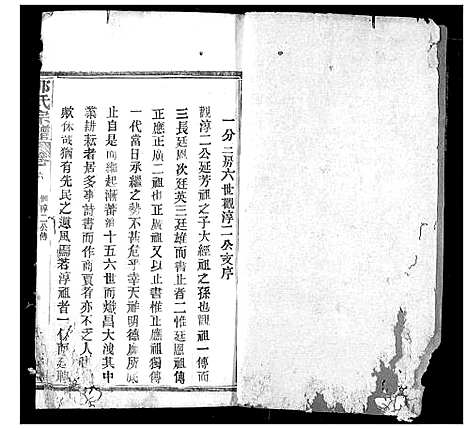 一分二房六世觀淳二公支序
觀淳二公延芳祖之子大經祖之孫也觀祖一傳而
三長廷恩次廷英三廷雄而書止者二惟廷恩祖傳
正應正廣二祖也正廣祖又以止書惟正應祖獨傳
一代當日承繼之勢不甚危乎幸天祚明德廣所
止自是而繩起漸蕃迨十五六世而熾昌大浚其中
業耕耘者居多事詩書而作商賈者亦不乏人
歟休哉猶有先民之遺風焉若淳祖者一傳而廷聘
氏宗譜
觀淳二公傳